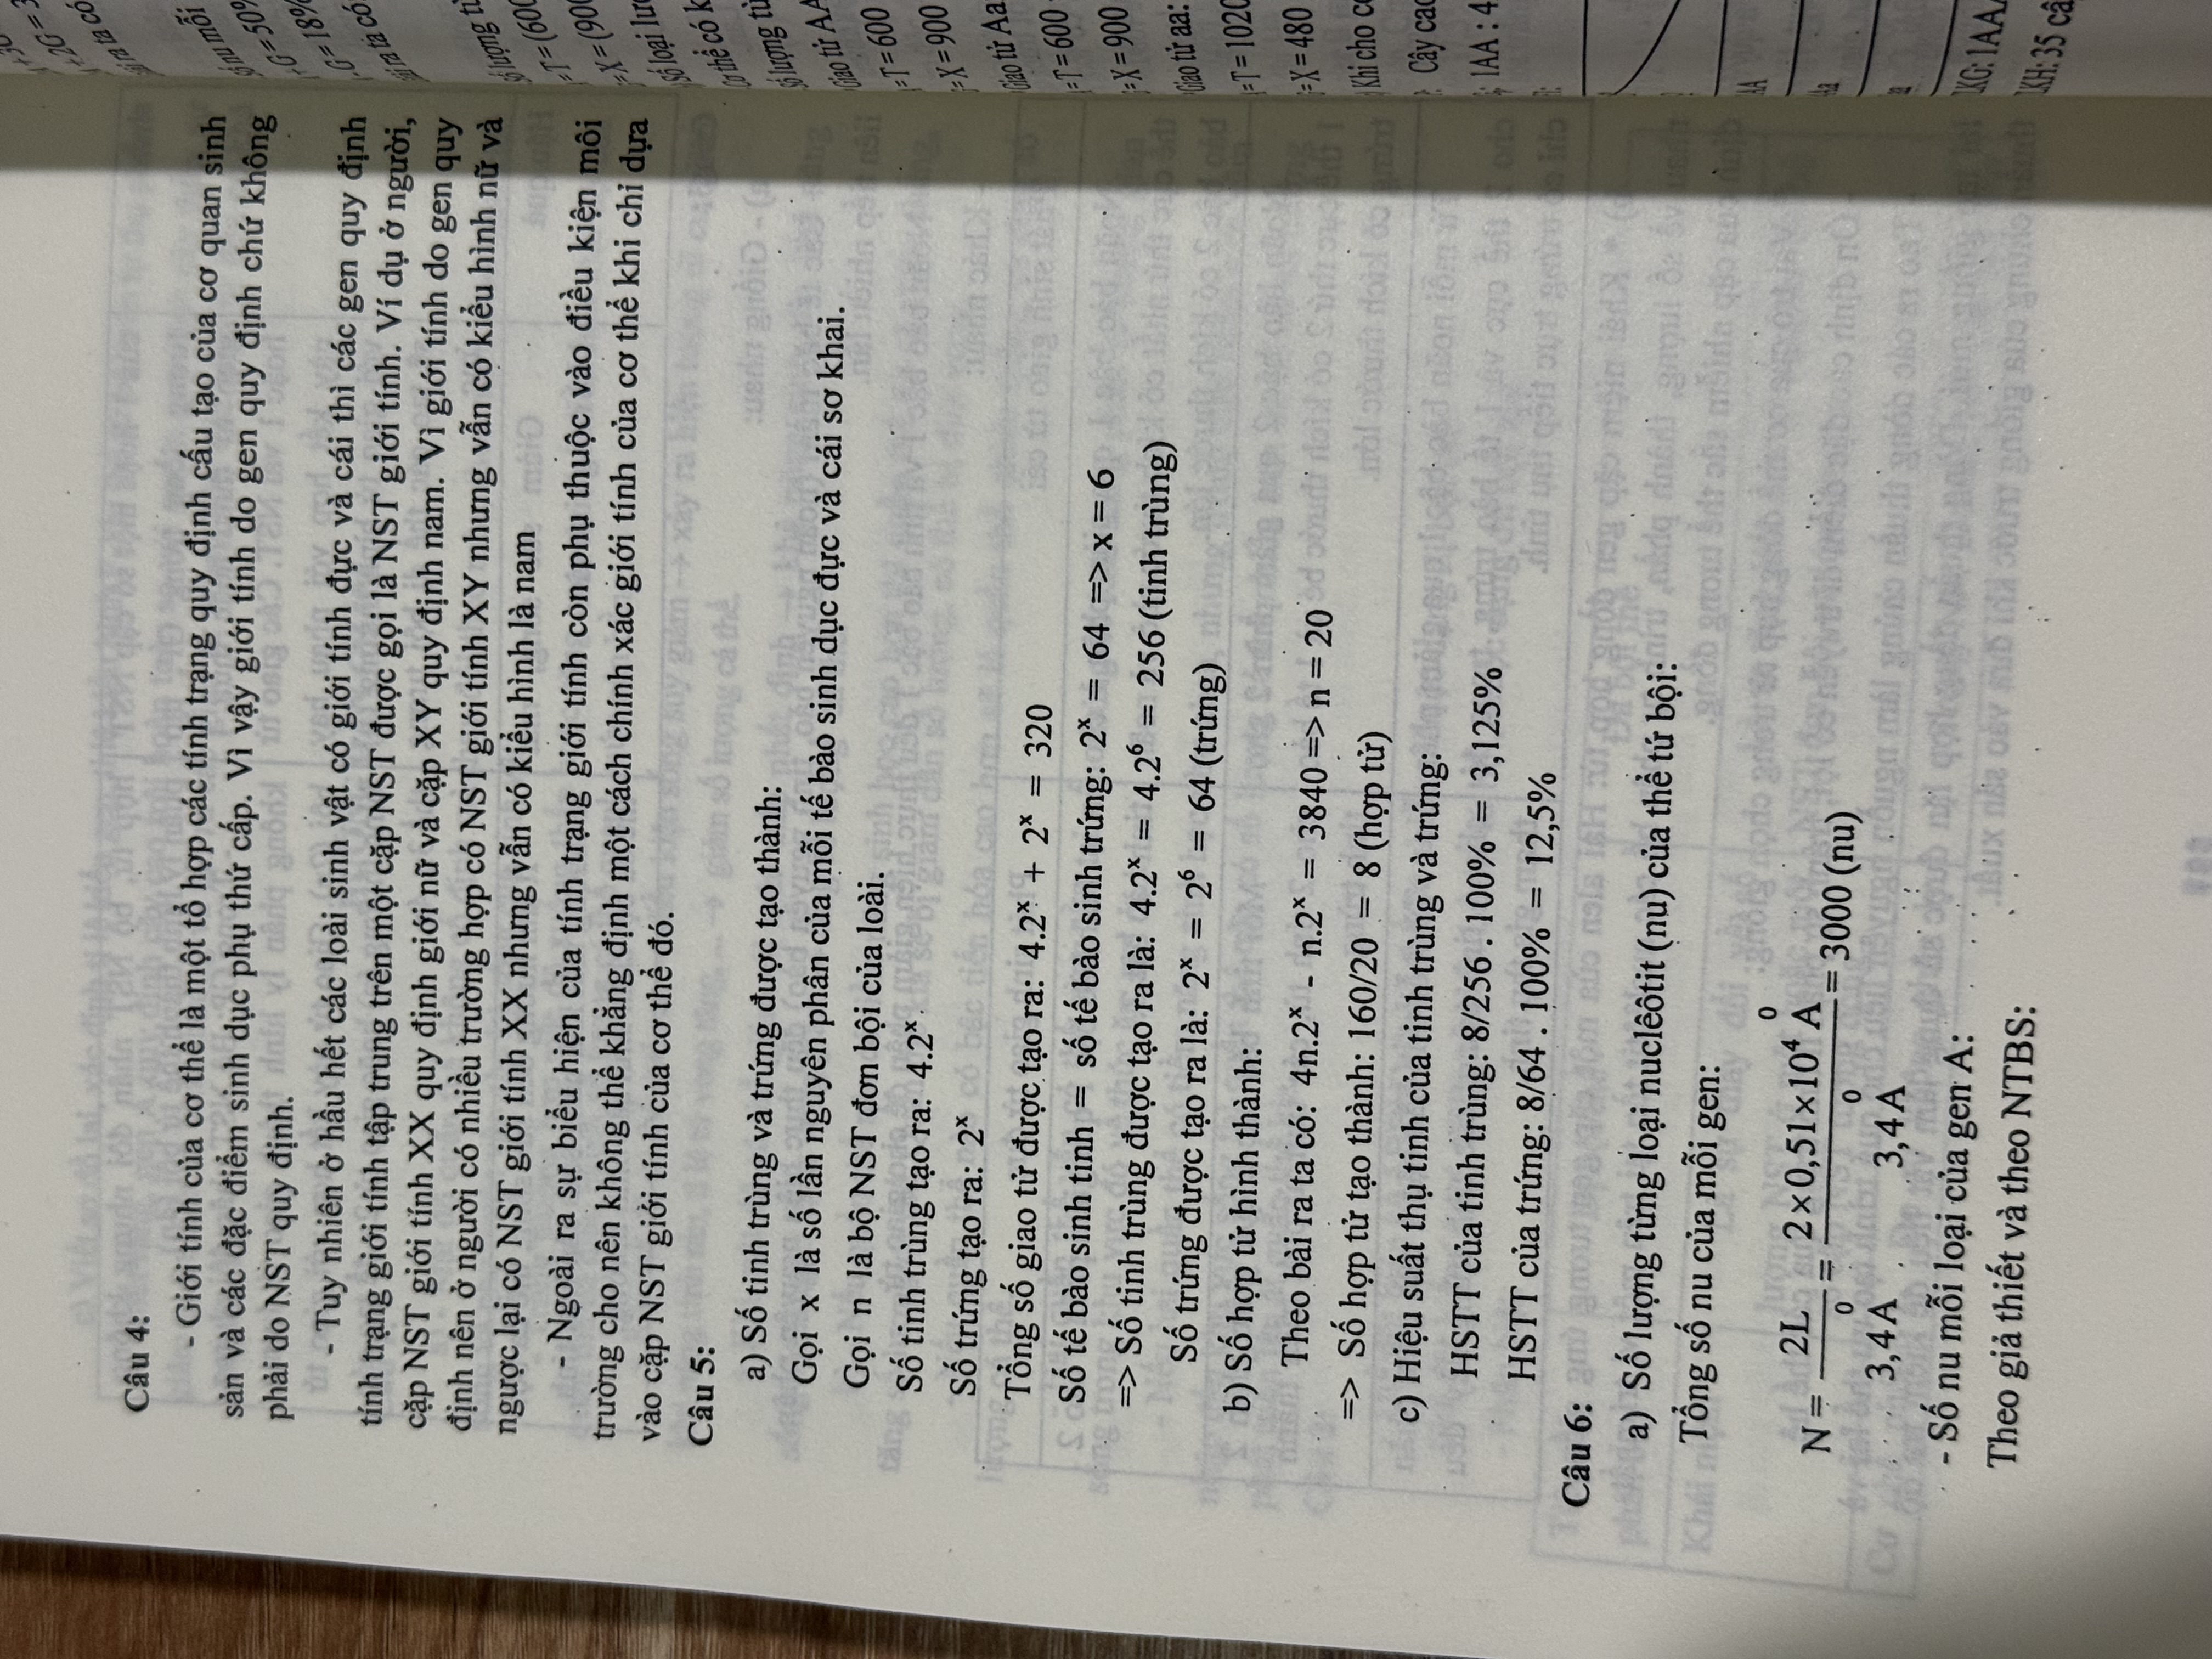 Câu 4:
- Giới tính của cơ thể là một tổ hợp các tính trạng quy định cấu tạo của cơ quan sinh
sản và các đặc điểm sinh dục phụ thứ cấp. Vì vậy giới tính do gen quy định chứ không
phải do NST quy định.
- Tuy nhiên ở hầu hết các loài sinh vật có giới tính đực và cái thì các gen quy định
tính trạng giới tính tập trung trên một cặp NST được gọi là NST giới tính. Ví dụ ở người,
cặp NST giới tính XX quy định giới nữ và cặp XY quy định nam. Vì giới tính do gen quy
định nên ở người có nhiều trường hợp có NST giới tính XY nhưng vẫn có kiểu hình nữ và
ngược lại có NST giới tính XX nhưng vẫn có kiểu hình là nam
- Ngoài ra sự biểu hiện của tính trạng giới tính còn phụ thuộc vào điều kiện môi
trường cho nên không thể khẳng định một cách chính xác giới tính của cơ thể khi chỉ dựa
vào cặp NST giới tính của cơ thể đó.
Câu 5:
a) Số tinh trùng và trứng được tạo thành:
Gọi x là số lần nguyên phân của mỗi tế bào sinh dục đực và cái sơ khai.
Gọi n là bộ NST đơn bội của loài.
Số tinh trùng tạo ra: 4.2ˣ
Số trứng tạo ra: 2ˣ
Tổng số giao tử được tạo ra: 4.2ˣ + 2ˣ = 320
Số tế bào sinh tinh = số tế bào sinh trứng: 2ˣ = 64 => x = 6
=> Số tinh trùng được tạo ra là: 4.2ˣ = 4.2⁶ = 256 (tinh trùng)
Số trứng được tạo ra là: 2ˣ = 2⁶ = 64 (trứng)
b) Số hợp tử hình thành:
Theo bài ra ta có: 4n.2ˣ - n.2ˣ = 3840 => n = 20
=> Số hợp tử tạo thành: 160/20 = 8 (hợp tử)
c) Hiệu suất thụ tinh của tinh trùng và trứng:
HSTT của tinh trùng: 8/256 . 100% = 3,125%
HSTT của trứng: 8/64 . 100% = 12,5%
Câu 6:
a) Số lượng từng loại nuclêôtit (nu) của thể tứ bội:
Tổng số nu của mỗi gen:
N = 2L / 3,4 Å = 2×0,51×10⁴ Å / 3,4 Å = 3000 (nu)
- Số nu mỗi loại của gen A:
Theo giả thiết và theo NTBS:
=T = 600
=X = 900
Giao tử Aa
=T = 600
=X = 900
Giao tử aa:
=T = 1020
=X = 480
Khi cho
Cây cao